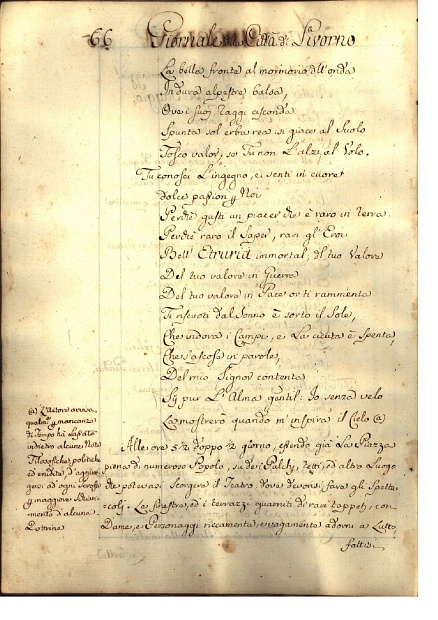 66 Giornale della Città di Livorno
La bella fronte al mormorio dell'onda
In dura alpestre balsa,
Ove i suoi Raggi asconda
Spunta sol erba rea si giace al Suolo
Tosco valor, se Tu non L'alzi al Volo.
Tu conosci L'ingegno, ci senti in cuore
dolce passion
Perchè gusti un piacer che è raro in terra
Perchè raro il Saper, rari gl'Eroi
Bell' Etruria immortal, del tuo Valore
Del tuo valore in Guerra
Del tuo valore in Pace or ti rammenta
Ti riscuoti dal Sonno è sorto il Sole,
Che indora i Campi, e La cicuta è Spenta,
Che s'ascose in parole,
Del mio Signor contenta
pur L'Alma gentil. Io senza velo
La mostrerò quando m'inspira il Cielo @)
@) L'Autore avvisa,
qualm. mancanza
di Tempo hà lassato
indietro alcune Note
Filosofiche, politiche
ed erudite, d'aggiun
gersi ad ogni
e maggiore
mento d'alcune
Dottrine
Alle ore 5½ doppo ½ giorno, essendo già La Piazza
piena di numeroso Popolo, su de i Palchj, tetti, ed altro Luogo
de potevasi Scorgere il Teatro, dove devonsi fare gli Spetta-
coli. Le finestre, ed i terrazzi guarniti di rari tappeti, con
Dame, e Personaggi riccamente, e vagamente adorni a Lutto,
fattisi